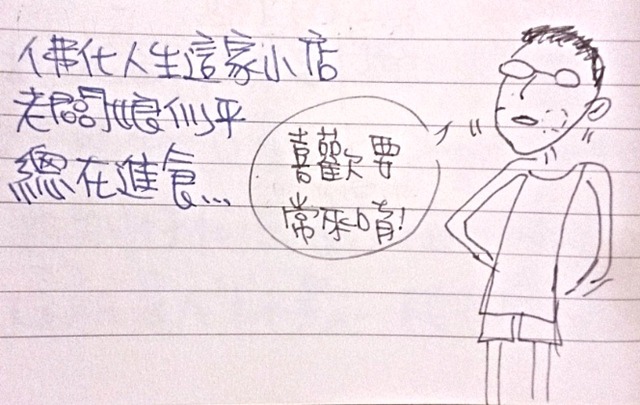 佛化人生這家小店
老闆娘似乎
總在進食...
喜歡要
常來唷!